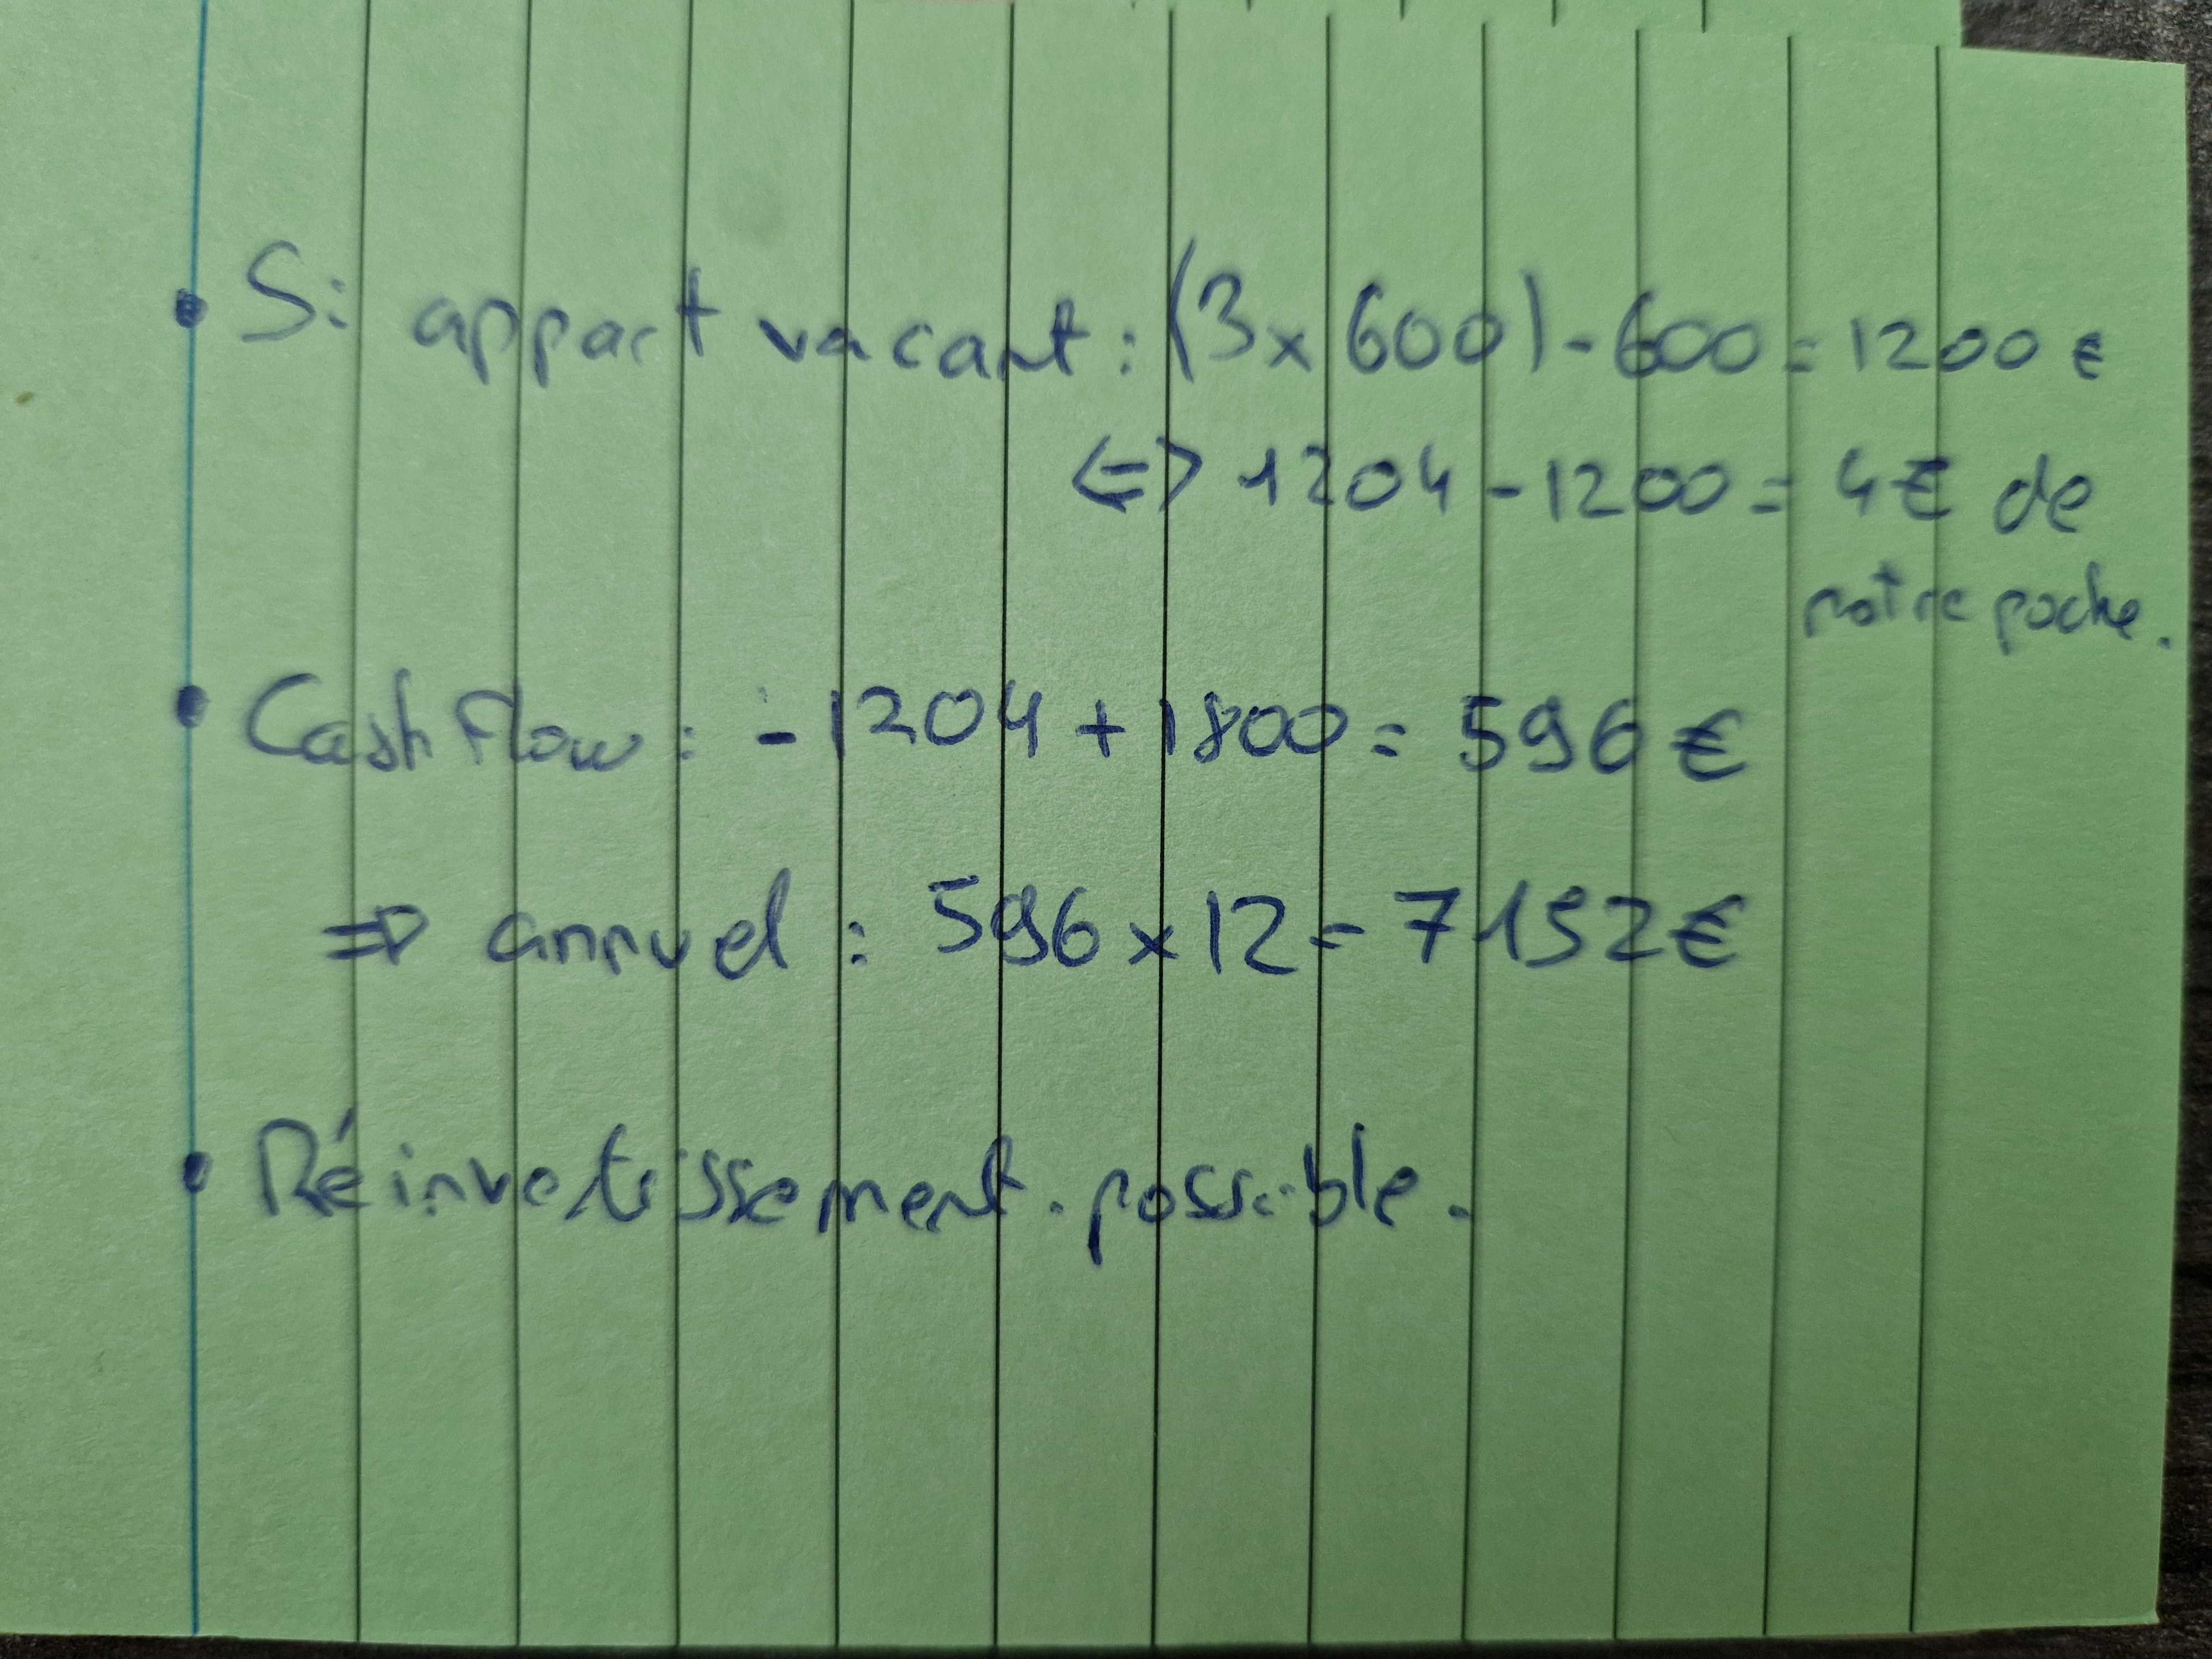 • Si appart vacant : (3 x 600) - 600 = 1200 €
<=> 1204 - 1200 = 4 € de
notre poche.
• Cash Flow : - 1204 + 1800 = 596 €
=> annuel : 596 x 12 = 7152 €
• Réinvestissement possible.